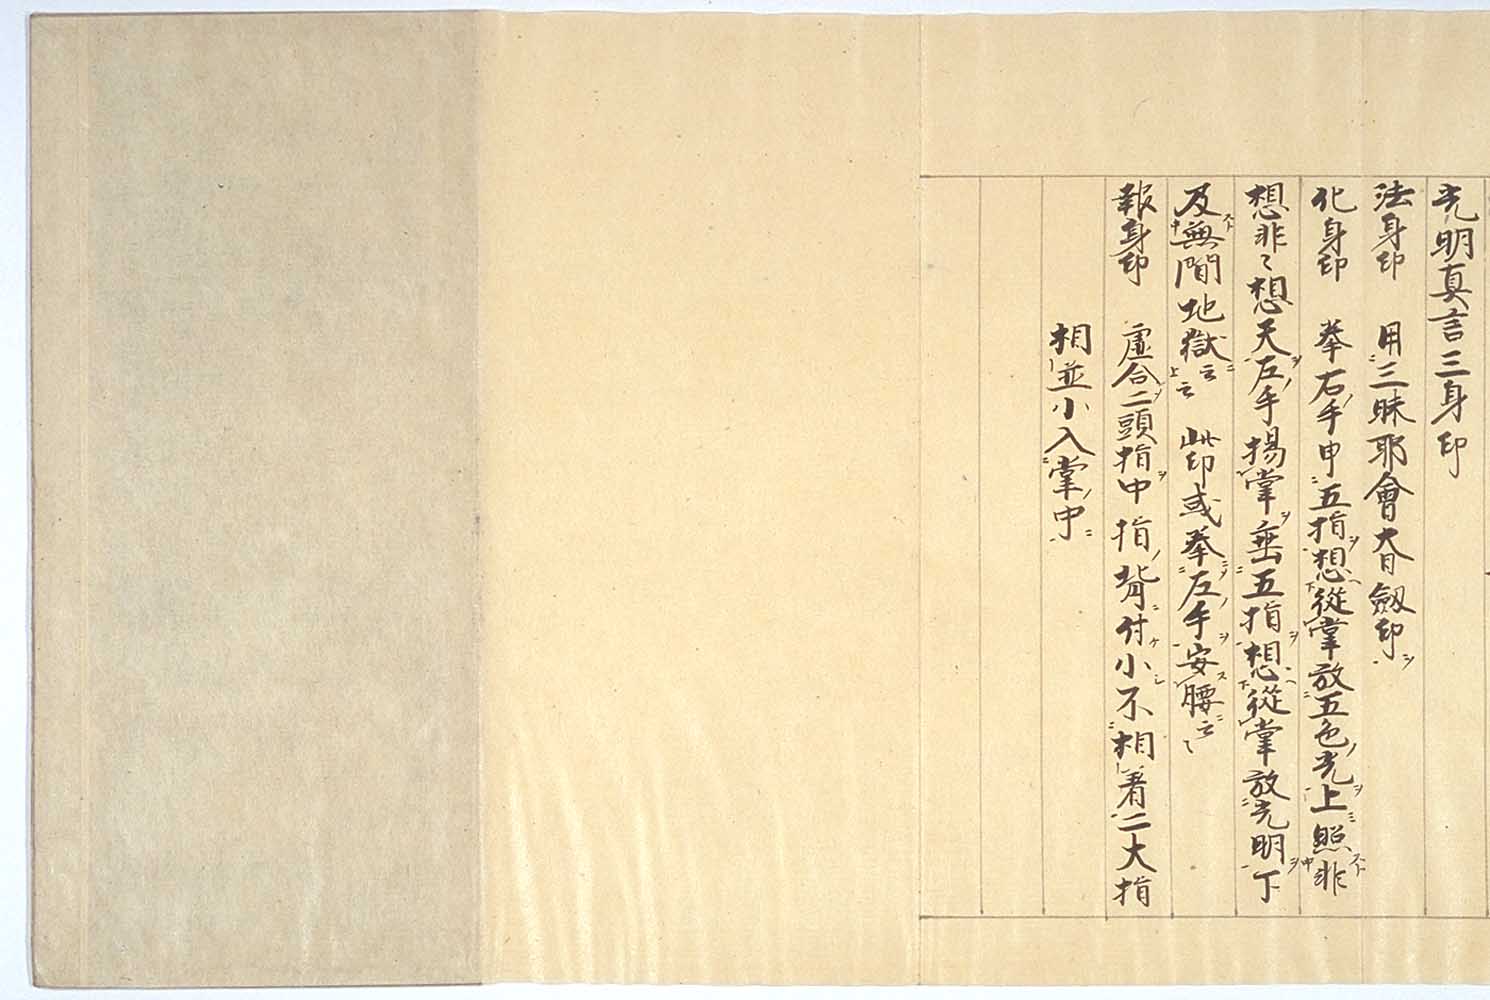 光明真言三身印
法身印 用三昧耶會大日劔印
化身印 拳右手申五指想從掌放五色光上照非
想非々想天左手揚掌垂五指想從掌放光明下
及無間地獄云云 此印或拳左手安腰云々
報身印 虚合二頭指中指背付小不相着二大指
相並小入掌中